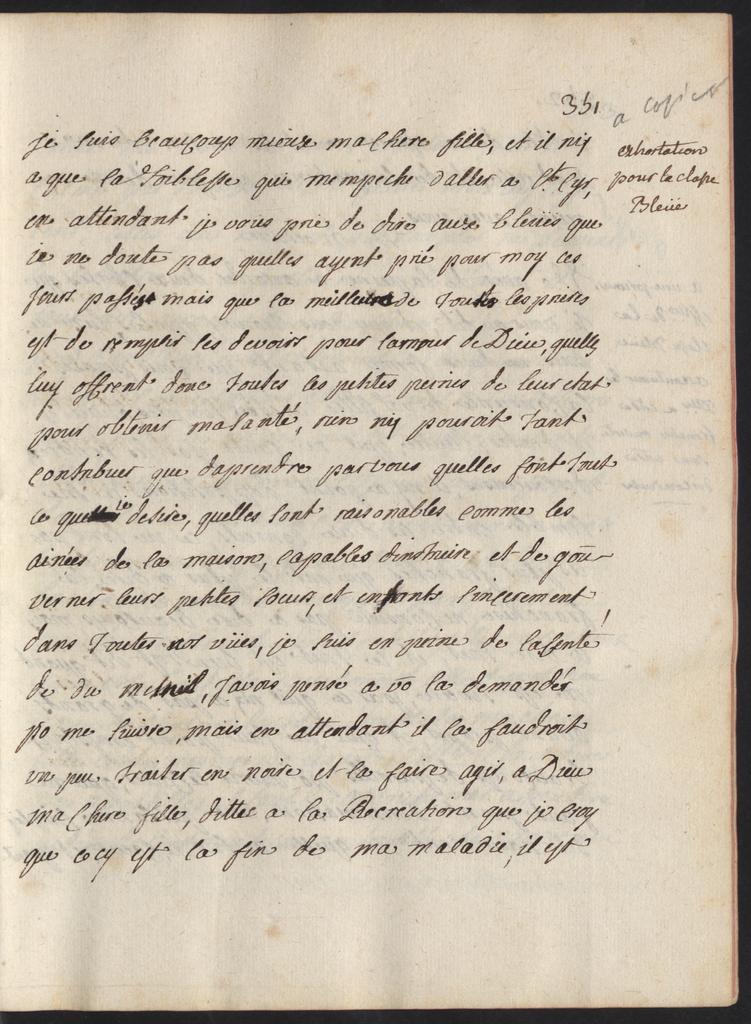 351
a copier
exhortation
pour la classe
Bleüe
je suis beaucoup mieux ma chere fille, et il niy
a que la foiblesse qui mempeche daller a St Cyr,
en attendant je vous prie de dire aux bleües que
je ne doute pas quelles ayent prié pour moy ces
jours passés mais que la meilleure de toutes les prieres
est de remplir ses devoirs pour lamour de Dieu, quelles
luy offrent donc toutes les petites peines de leur etat
pour obtenir ma santé, rien niy pouroit tant
contribuer que daprendre par vous quelles font tout
ce que je desire, quelles sont raisonables comme les
ainées de la maison, capables dinstruire et de gou-
verner leurs petites soeurs, et entrants sincerement
dans toutes nos vües, je suis en peine de la senté
de du mesnil, javois pensé a vo la demandér
po me suivre, mais en attendant il la faudroit
un peu traiter en noire et la faire agir, a Dieu
ma chere fille, dittes a la Recreation que je croy
que cecy est la fin de ma maladie, il est